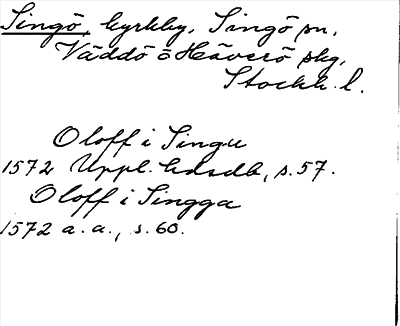 Singö, kyrkby, Singö sn,
Väddö o Häverö skg,
Stockh. l.
Oloff i Singu
1572 Uppl. hdsdb, s. 57.
Oloff i Singga
1572 a. a., s. 60.